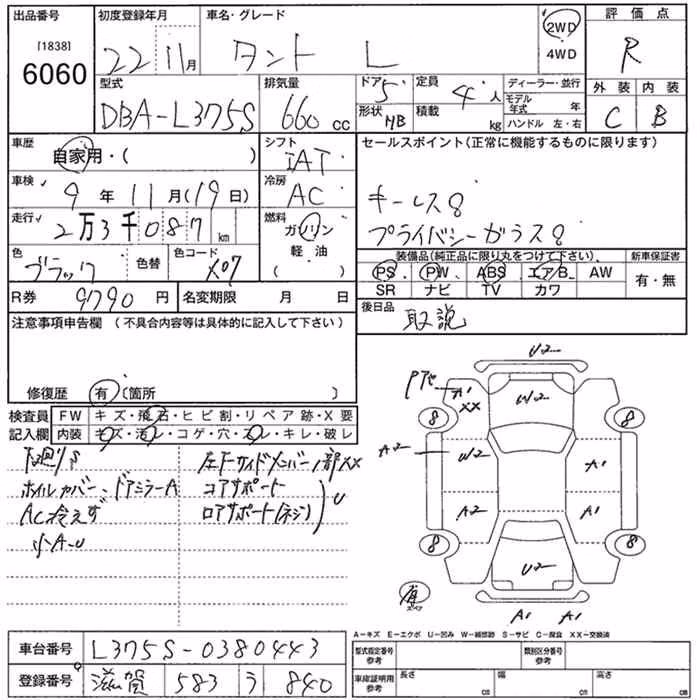 出品番号
[1838]
6060
初度登録年月
22 11月
車名・グレード
タント L
2WD
4WD
評価点
R
型式
DBA-L375S
排気量
660 cc
ドア 5
形状 HB
定員
4人
積載
kg
ディーラー・並行
モデル年式 年
ハンドル 左・右
外装 内装
C B
車歴
自家用・( )
シフト
IAT
車検
9年 11月(19日)
冷房
AC
走行
2万3千087 km
燃料
ガソリン
軽油
( )
色
ブラック
色替
色コード
X07
R券 9790円
名変期限 月 日
セールスポイント(正常に機能するものに限ります)
キーレス
プライバシーガラス
装備品(純正品に限り丸をつけて下さい)
PS PW ABS エアB AW
SR ナビ TV カワ
新車保証書
有・無
後日品
取説
注意事項申告欄 (不具合内容等は具体的に記入して下さい)
修復歴 有 (箇所 )
検査員記入欄
FW キズ・飛石・ヒビ割・リペア跡・X要
内装 キズ・汚レ・コゲ・穴・スレ・キレ・破レ
下廻りS
ホイルカバー、ドアミラーA
AC冷えず
小A-U
左下サイドメンバー一部XX
コアサポート
ロアサポート(ネジ)
U
U2
A1
XX
W2
8 8
A2 W2 A1
A2 A1
8 8
U2
A1 A1
A-キズ E-エクボ U-凹み W-補修跡 S-サビ C-腐食 XX-交換済
車台番号 L375S-0380443
登録番号 滋賀 583 う 840
型式指定番号
参考
類別区分番号
参考
車庫証明用
参考
長さ cm
幅 cm
高さ cm